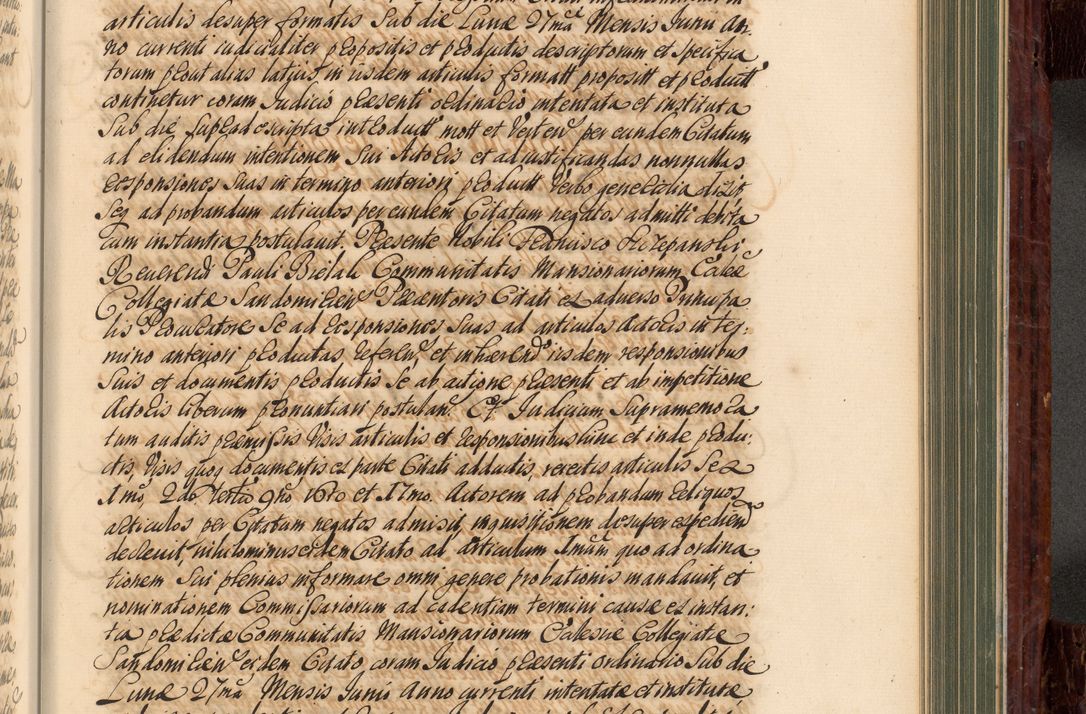 articulis desuper formatis Sub die Lunæ 27mâ Mensis Junii An-
no currenti iudicialiter propositis et productis descriptorum et specifica
torum prout alias latius in iisdem articulis formatt propositt et productt
continetur coram Judicio præsenti ordinario intentata et instituta
Sub die supradescripta introductt mott et Verten per eundem Citatum
ad elidendum intentionem Sui Actoris et ad justificandas nonnullas
responsiones suas in termino anteriori productt Verbo generolia dixit
Seq ad probandum articulos per eundem Citatum negatos admitti debita
cum instantia postulauit. Præsente Nobili Francisco Szczepanski
Reuerendi Pauli Bielak Communitatis Mansionariorum Ecclæ
Collegiatæ Sandomirien Præcentoris Citati ex aduerso Principa
lis Procuratore Se ad responsiones suas ad articulos Actoris in ter-
mino anteriori productas referen et inhærendo iisdem responsionibus
suis et documentis productis Se ab actione præsenti et ab impetitione
Actoris liberum pronuntiari postulan. Et Judicium Supramemora
tum auditis præmissis Visis articulis et responsionibus hinc et inde produ-
ctis, Visis quoq documentis ex parte Citati adductis, reiectis articulis Sez
1mo, 2do Tertio 9no 16to et 17mo. Actorem ad probandum reliquos
articulos per Citatum negatos admisit, inquisitionem desuper expediend
decreuit, nihilominus eidem Citato ad articulum 1mum quo ad ordina
tionem Sui plenius informare omni genere probationis mandauit, et
nominationem Commissariorum ad cadentiam termini causæ ex instan-
tia prædictæ Communitatis Mansionariorum Ecclesiæ Collegiatæ
Sandomirien eidem Citato coram Judicio præsenti ordinario Sub die
Lunæ 27mâ Mensis Junii Anno currenti intentatæ et institutæ